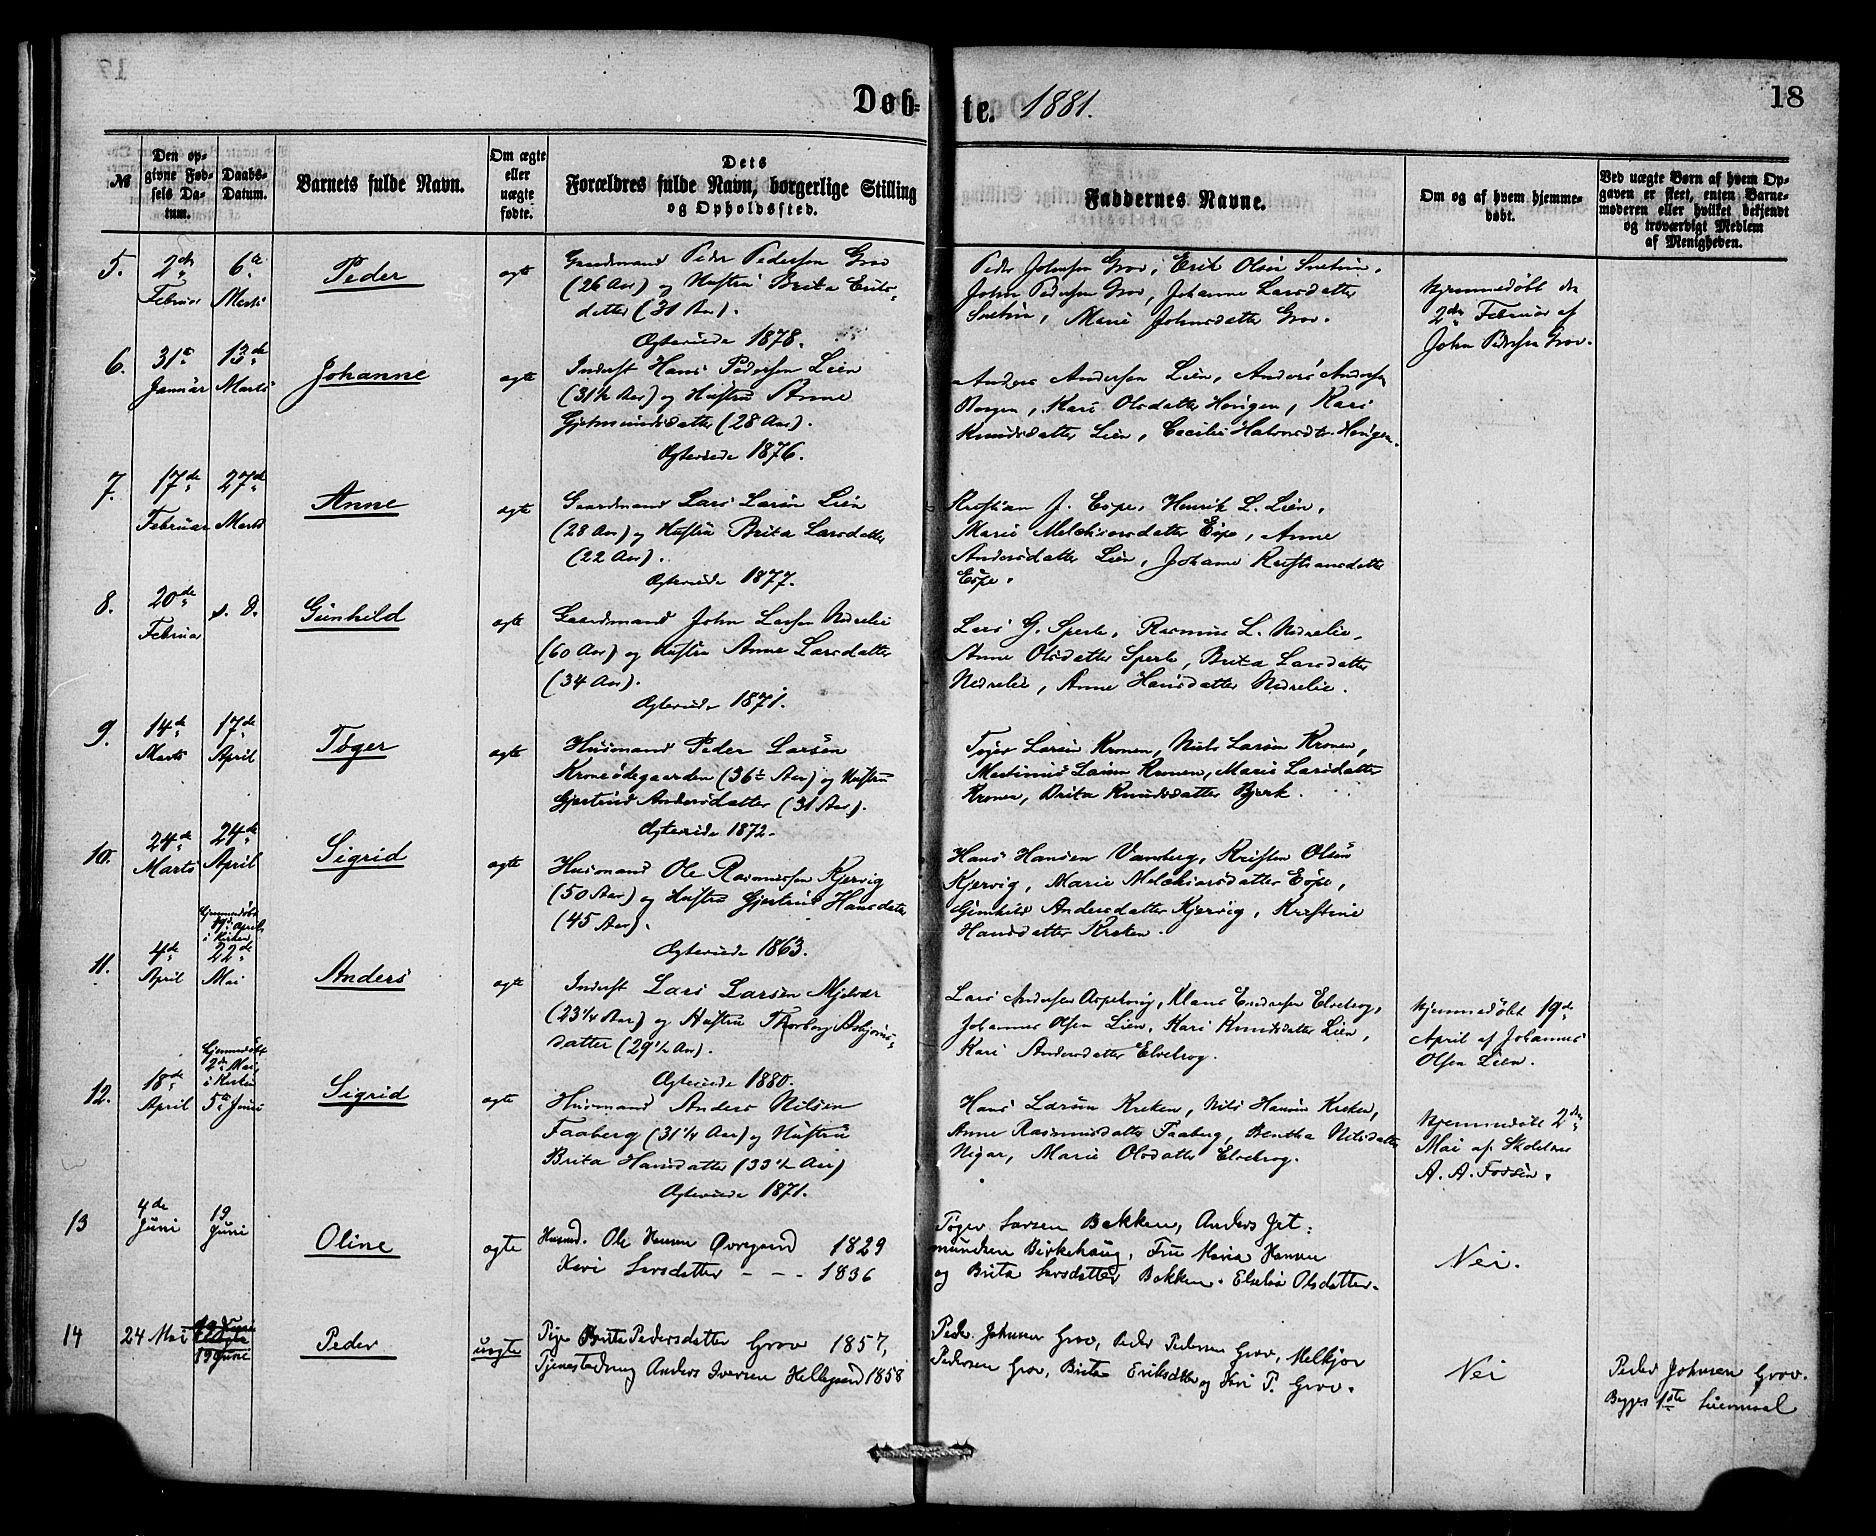 Døb-te. 1881.
18
№
Den opgivne Fødsels Datum.
Daabs-Datum.
Barnets fulde Navn.
Om ægte eller uægte fødte.
Dets Forældres fulde Navn, borgerlige Stilling og Opholdssted.
Faddernes Navne.
Om og af hvem hjemmedøbt.
Ved uægte Børn af hvem Opgaven er skeet, enten Barnemoderen eller hvilket bekjendt og troværdigt Medlem af Menigheden.
5. 2den Februar 6te Marts Peder ægte
Gaardmand Peder Pedersen Grov
(26 Aar) og Hustru Brita Eriks-
datter (31 Aar).
Ægteviede 1878.
Peder Johnsen Grov, Erik Olsen
John Pedersen Grov, Johanne Larsdatter
Marie Johnsdatter Grov.
Hjemmedøbt den
2den Februar af
John Pedersen Grov.
6. 31te Januar 13de Marts Johanne ægte
Inderst Hans Pedersen Lien
(31½ Aar) og Hustru Anne
Gjetmundsdatter (28 Aar).
Ægteviede 1876.
Anders Andersen Lien, Anders Andersen
Kari Olsdatter Kari
Knudsdatter Lien, Cecilie
7. 17de Februar 27de Marts Anne ægte
Gaardmand Lars Larsen Lien
(28 Aar) og Hustru Brita Larsdatter
(22 Aar).
Ægteviede 1877.
Kristian J. Espe, Henrik L. Lien,
Marie Melchiorsdatter Espe, Anne
Andersdatter Lien, Johanne Kristiansdatter
Espe.
8. 20de Februar s. D. Gunhild ægte
Gaardmand John Larsen Nedrelie
(60 Aar) og Hustru Anne Larsdatter
(34 Aar).
Ægteviede 1871.
Lars G. Sperle, Rasmus L. Nedrelie,
Anne Olsdatter Sperle, Brita Larsdatter
Nedrelie, Anne Hansdatter Nedrelie.
9. 14de Marts 17de April Tøger ægte
Husmand Peder Larsen
Kroneødegaarden (36½ Aar) og Hustru
Gjertrud Andersdatter (31 Aar).
Ægteviede 1872.
Tøger Larsen Kronen, Niels Larsen Kronen,
Martinus Larsen Kronen, Marie Larsdatter
Kronen, Brita Knudsdatter Bjerk.
10. 24de Marts 24de April Sigrid ægte
Husmand Ole Rasmussen Kjervig
(50 Aar) og Hustru Gjertrud Hansdatter
(45 Aar).
Ægteviede 1863.
Hans Hansen Vamberg, Kristen Olsen
Kjervig, Marie Melchiorsdatter Espe,
Gunhild Andersdatter Kjervig, Kristine
Hansdatter Kreken.
11. 4de April Hjemmedøbt 19de April, i Kirken 22de Mai Anders ægte
Inderst Lars Larsen Myklver
(23¼ Aar) og Hustru Thorborg Asbjørns-
datter (29½ Aar).
Ægteviede 1880.
Lars Andersen Aspelvig, Klaus Endresen Elvekrog,
Johannes Olsen Lien, Kari Knudsdatter Lien,
Kari Andersdatter Elvekrog.
Hjemmedøbt 19de
April af Johannes
Olsen Lien.
12. 18de April Hjemmedøbt 2den Mai, i Kirken 5te Juni Sigrid ægte
Husmand Anders Nilsen
Faaberg (31¼ Aar) og Hustru
Brita Hansdatter (33½ Aar)
Ægteviede 1871.
Hans Larsen Kreken, Nils Hansen Kreken,
Anne Rasmusdatter Faaberg, Bertha Nilsdatter
Nigar, Marie Olsdatter Elvekrog.
Hjemmedøbt 2den
Mai af Skolelærer
A. A. Fossen.
13 4de Juni 19 Juni Oline ægte
Husmd. Ole Hansen Øvregaard 1829
Kari Larsdatter - - - 1836
Tøger Larsen Bakken, Anders Jet:
mundsen Birkehaug, Fru Maria Hansen
og Brita Larsdatter Bakken. Elseba Olsdatter.
Nei.
14 24 Mai 19 Juni Peder uægte
Pige Brita Pedersdatter Grov 1857,
Tjenestedreng Anders Iversen Hellegaard 1858
Peder Johnsen Grov, Peder Pedersen Grov, Melkjor
Pedersen Grov, Brita Eriksdtr og Kari P. Grov.
Nei
Peder Johnsen Grov.
Begges 1ste Leiermaal